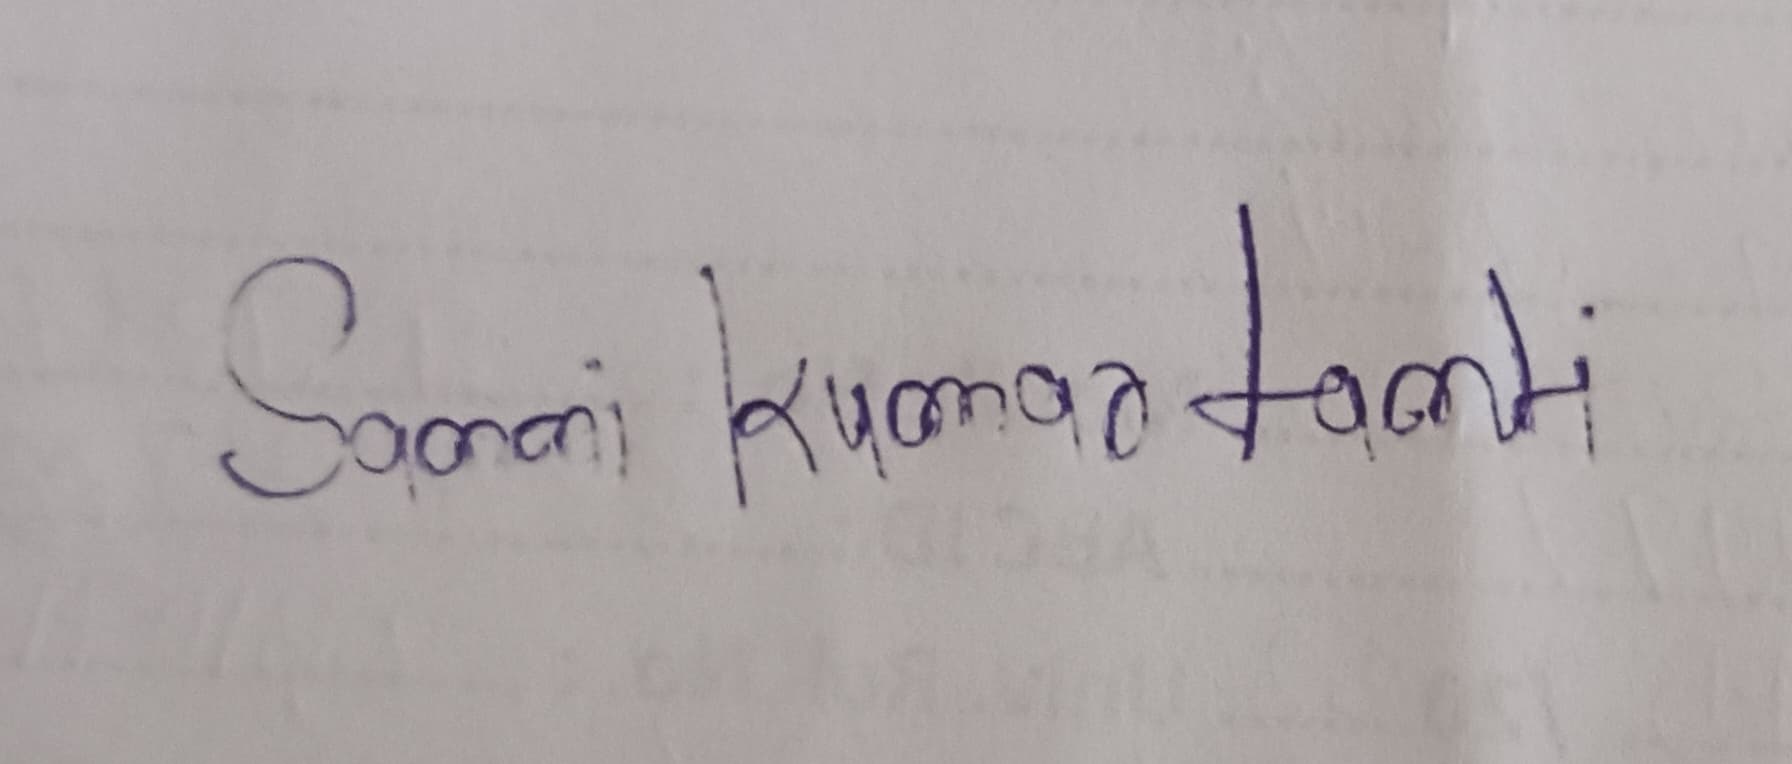 Sanni Kumar tanti